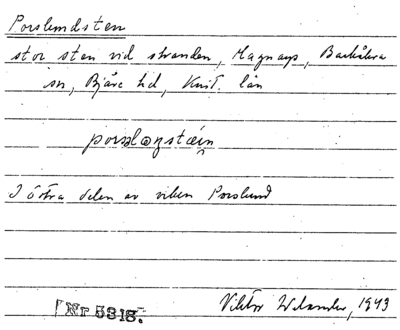 Porslundsten
stor sten vid stranden, Magnarp, Barkåkra
sn, Bjäre hd, Krist. län
I östra delen av viken Porslund
Viktor Welander, 1943
Nr 5318.